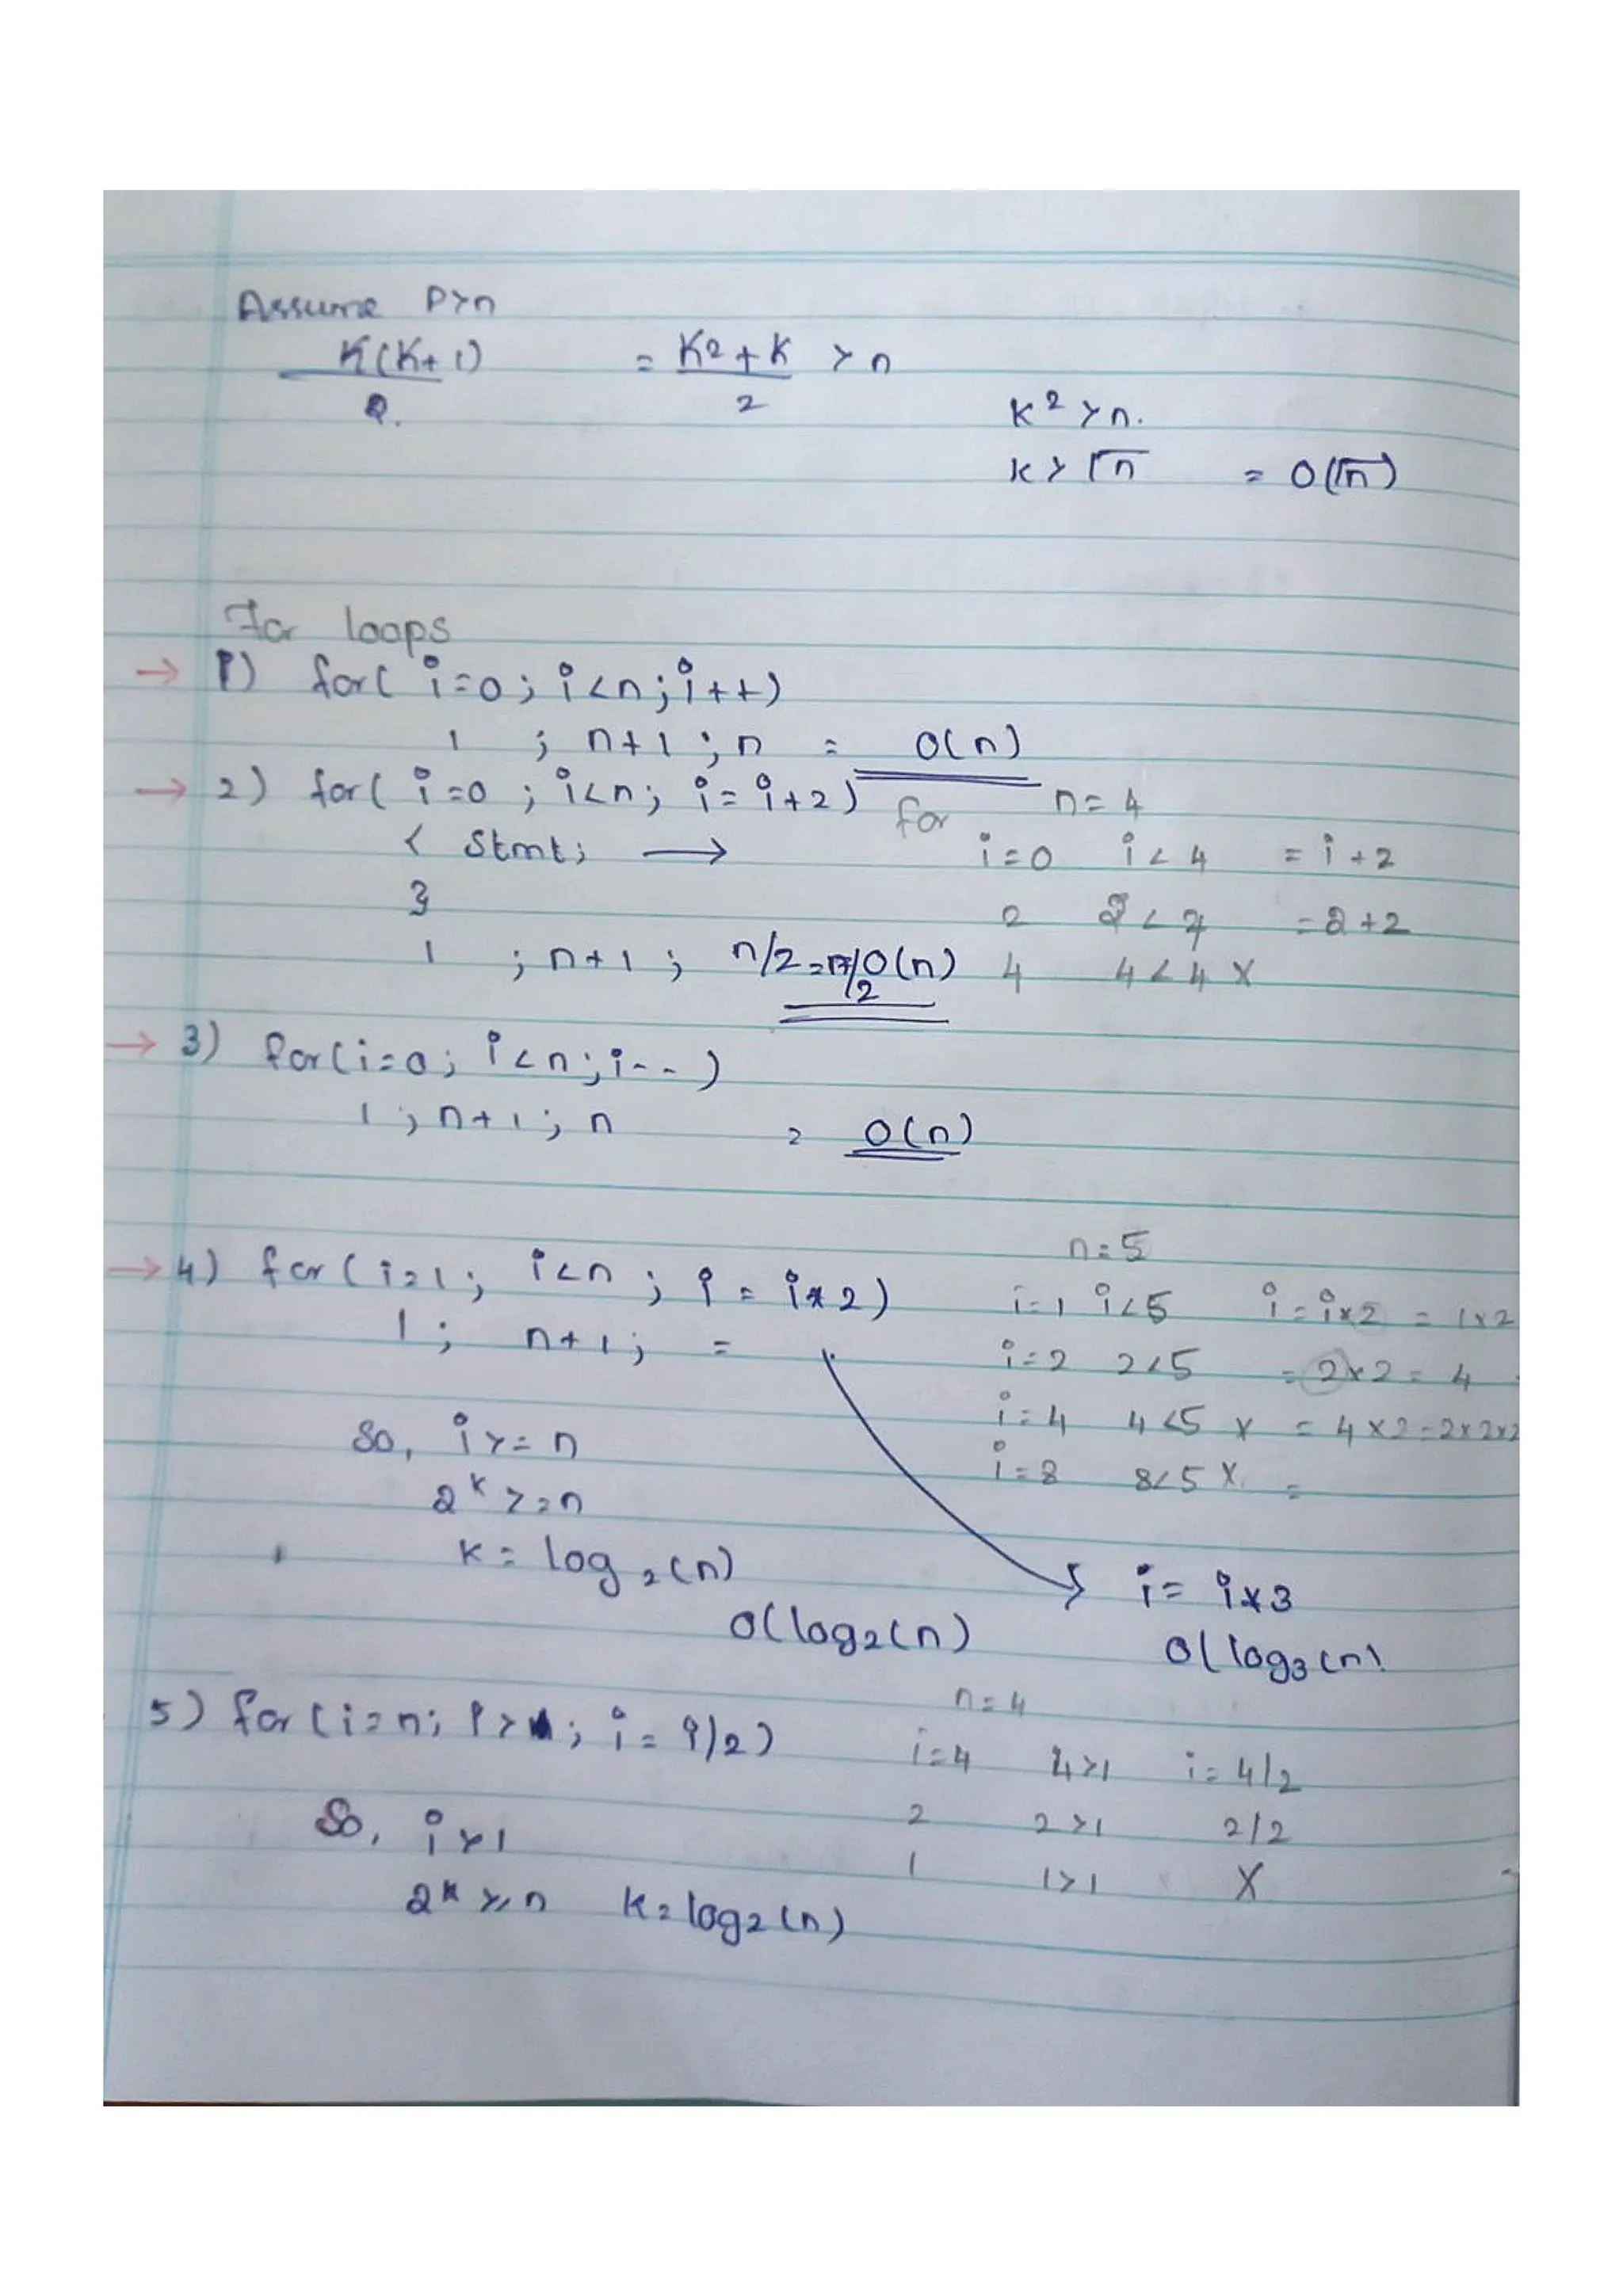 Assume P>n
K(K+1) / 2. = K2+K / 2 > n
K2 >n.
K > √n = O(√n)
For loops
→ 1) for( i=0; i<n; i++)
1 ; n+1 ; n = O(n)
→ 2) for( i=0 ; i<n; i= i+2) for n=4
{ Stmt; → i=0 i<4 = i+2
} 2 2<4 =2+2
1 ; n+1 ; n/2 = n/2 O(n) 4 4<4 X
→ 3) for(i=0; i<n; i--)
1 ; n+1 ; n = O(n)
n=5
→ 4) for(i=1; i<n ; i = i*2) i=1 i<5 i=i×2 = 1×2
1 ; n+1 ; = i=2 2<5 =2×2=4
i=4 4<5 X = 4×2=2×2×2
So, i>=n i=8 8<5 X. =
2^k >=n
K= log2(n) → i= i*3
O(log2(n) O(log3(n).
n=4
5) for(i=n; i>1; i= i/2) i=4 4>1 i=4/2
So, i>1 2 2>1 2/2
1 1>1 X
2^k >=n K=log2(n)